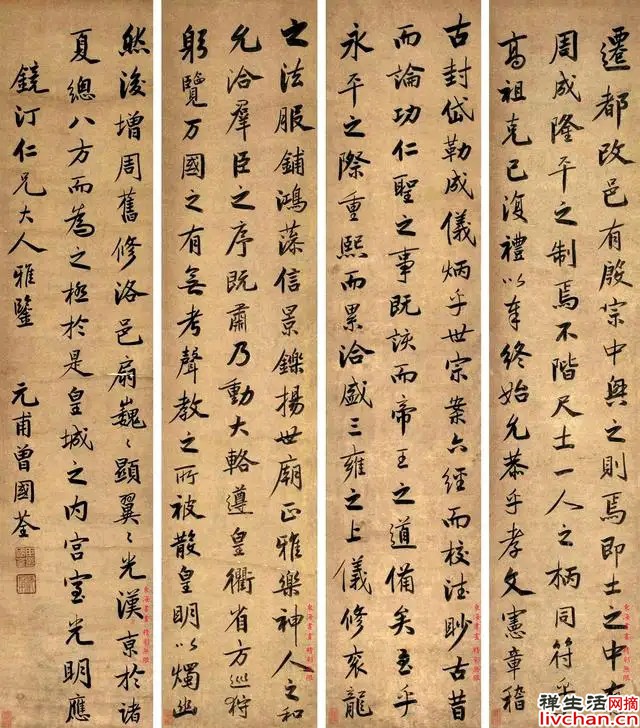 遷都改邑有殷宗中興之則焉即土之中有
周成隆平之制焉不階尺土一人之柄同符乎
高祖克己復禮以奉終始允恭乎孝文憲章稽
古封岱勒成儀炳乎世宗案六經而校德眇古昔
而論功仁聖之事既該而帝王之道備矣至乎
永平之際重熙而累洽盛三雍之上儀修袞龍
之法服鋪鴻藻信景鑠揚世廟正雅樂神人之和
允洽羣臣之序既肅乃動大輅遵皇衢省方巡狩
躬覽万國之有無考聲教之所被散皇明以燭幽
然後增周舊修洛邑扇巍〻顯翼〻光漢京於諸
夏總八方而為之極於是皇城之內宮室光明應
鏡汀仁兄大人雅鑒 元甫曾國荃
祥生活网摘
livchan.com